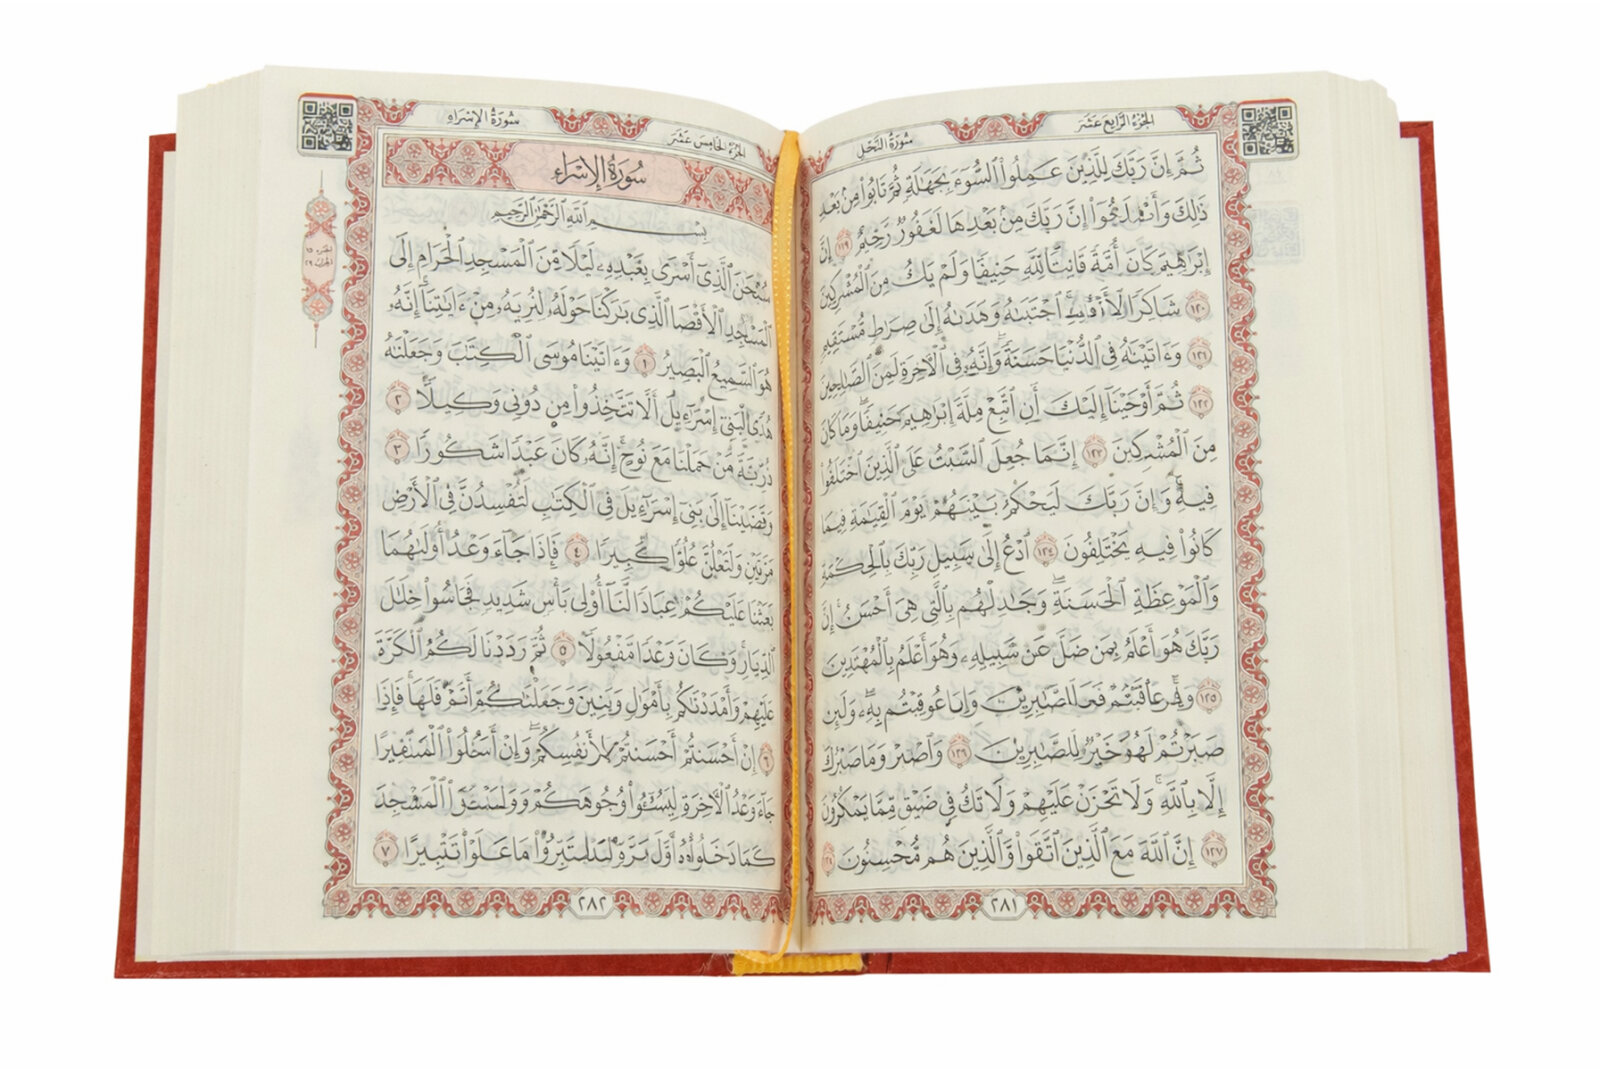 الجزء الرابع عشر
سورة النحل
ثُمَّ إِنَّ رَبَّكَ لِلَّذِينَ عَمِلُوا۟ ٱلسُّوٓءَ بِجَهَٰلَةٍ ثُمَّ تَابُوا۟ مِنۢ بَعْدِ
ذَٰلِكَ وَأَصْلَحُوٓا۟ إِنَّ رَبَّكَ مِنۢ بَعْدِهَا لَغَفُورٌ رَّحِيمٌ ١١٩ إِنَّ
إِبْرَٰهِيمَ كَانَ أُمَّةً قَانِتًا لِّلَّهِ حَنِيفًا وَلَمْ يَكُ مِنَ ٱلْمُشْرِكِينَ
١٢٠ شَاكِرًا لِّأَنْعُمِهِ ٱجْتَبَىٰهُ وَهَدَىٰهُ إِلَىٰ صِرَٰطٍ مُّسْتَقِيمٍ
١٢١ وَءَاتَيْنَٰهُ فِى ٱلدُّنْيَا حَسَنَةً وَإِنَّهُۥ فِى ٱلْءَاخِرَةِ لَمِنَ ٱلصَّٰلِحِينَ
١٢٢ ثُمَّ أَوْحَيْنَآ إِلَيْكَ أَنِ ٱتَّبِعْ مِلَّةَ إِبْرَٰهِيمَ حَنِيفًا وَمَا كَانَ
مِنَ ٱلْمُشْرِكِينَ ١٢٣ إِنَّمَا جُعِلَ ٱلسَّبْتُ عَلَى ٱلَّذِينَ ٱخْتَلَفُوا۟
فِيهِ وَإِنَّ رَبَّكَ لَيَحْكُمُ بَيْنَهُمْ يَوْمَ ٱلْقِيَٰمَةِ فِيمَا
كَانُوا۟ فِيهِ يَخْتَلِفُونَ ١٢٤ ٱدْعُ إِلَىٰ سَبِيلِ رَبِّكَ بِٱلْحِكْمَةِ
وَٱلْمَوْعِظَةِ ٱلْحَسَنَةِ وَجَٰدِلْهُم بِٱلَّتِى هِىَ أَحْسَنُ إِنَّ
رَبَّكَ هُوَ أَعْلَمُ بِمَن ضَلَّ عَن سَبِيلِهِۦ وَهُوَ أَعْلَمُ بِٱلْمُهْتَدِينَ
١٢٥ عُوقِبْتُم بِهِۦ وَلَئِن
صَبَرْتُمْ لَهُوَ خَيْرٌ لِّلصَّٰبِرِينَ ١٢٦ وَٱصْبِرْ وَمَا صَبْرُكَ
إِلَّا بِٱللَّهِ وَلَا تَحْزَنْ عَلَيْهِمْ وَلَا تَكُ فِى ضَيْقٍ مِّمَّا يَمْكُرُونَ
١٢٧ إِنَّ ٱللَّهَ مَعَ ٱلَّذِينَ ٱتَّقَوا۟ وَّٱلَّذِينَ هُم مُّحْسِنُونَ
٢٨١
الجزء الخامس عشر
سورة الإسراء
سورة الإسراء
بِسْمِ ٱللَّهِ ٱلرَّحْمَٰنِ ٱلرَّحِيمِ
سُبْحَٰنَ ٱلَّذِىٓ أَسْرَىٰ بِعَبْدِهِۦ لَيْلًا مِّنَ ٱلْمَسْجِدِ ٱلْحَرَامِ إِلَى
ٱلْمَسْجِدِ ٱلْأَقْصَا ٱلَّذِى بَٰرَكْنَا حَوْلَهُۥ لِنُرِيَهُۥ مِنْ ءَايَٰتِنَآ إِنَّهُۥ
هُوَ ٱلسَّمِيعُ ٱلْبَصِيرُ ١ وَءَاتَيْنَا مُوسَى ٱلْكِتَٰبَ وَجَعَلْنَٰهُ
هُدًى لِّبَنِىٓ إِسْرَٰٓءِيلَ أَلَّا تَتَّخِذُوا۟ مِن دُونِى وَكِيلًا ٢
ذُرِّيَّةَ مَنْ حَمَلْنَا مَعَ نُوحٍ إِنَّهُۥ كَانَ عَبْدًا شَكُورًا ٣
وَقَضَيْنَآ إِلَىٰ بَنِىٓ إِسْرَٰٓءِيلَ فِى ٱلْكِتَٰبِ لَتُفْسِدُنَّ فِى ٱلْأَرْضِ
مَرَّتَيْنِ وَلَتَعْلُنَّ عُلُوًّا كَبِيرًا ٤ فَإِذَا جَآءَ وَعْدُ أُولَىٰهُمَا
بَعَثْنَا عَلَيْكُمْ عِبَادًا لَّنَآ أُو۟لِى بَأْسٍ شَدِيدٍ فَجَاسُوا۟ خِلَٰلَ
ٱلدِّيَارِ وَكَانَ وَعْدًا مَّفْعُولًا ٥ ثُمَّ رَدَدْنَا لَكُمُ ٱلْكَرَّةَ
عَلَيْهِمْ وَأَمْدَدْنَٰكُم بِأَمْوَٰلٍ وَبَنِينَ وَجَعَلْنَٰكُمْ
٦ إِنْ أَحْسَنتُمْ أَحْسَنتُمْ لِأَنفُسِكُمْ وَإِنْ أَسَأْتُمْ فَلَهَا فَإِذَا
جَآءَ وَعْدُ ٱلْءَاخِرَةِ لِيَسُۥٓـُٔوا۟ وُجُوهَكُمْ ٱلْمَسْجِدَ
كَمَا دَخَلُوهُ أَوَّلَ مَرَّةٍ وَلِيُتَبِّرُوا۟ مَا عَلَوْا۟ تَتْبِيرًا ٧
٢٨٢